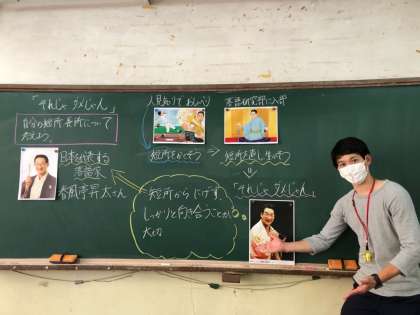 「それじゃダメじゃん」
自分の短所長所について
考えよう。
日本を代表する
落語家
春風亭昇太さん
人見知りで おしゃべり
短所をかくそう
落語研究部に入部
短所を直し、生かそう
「それじゃダメじゃん」
短所からにげず、
しっかりと向き合うことが
大切